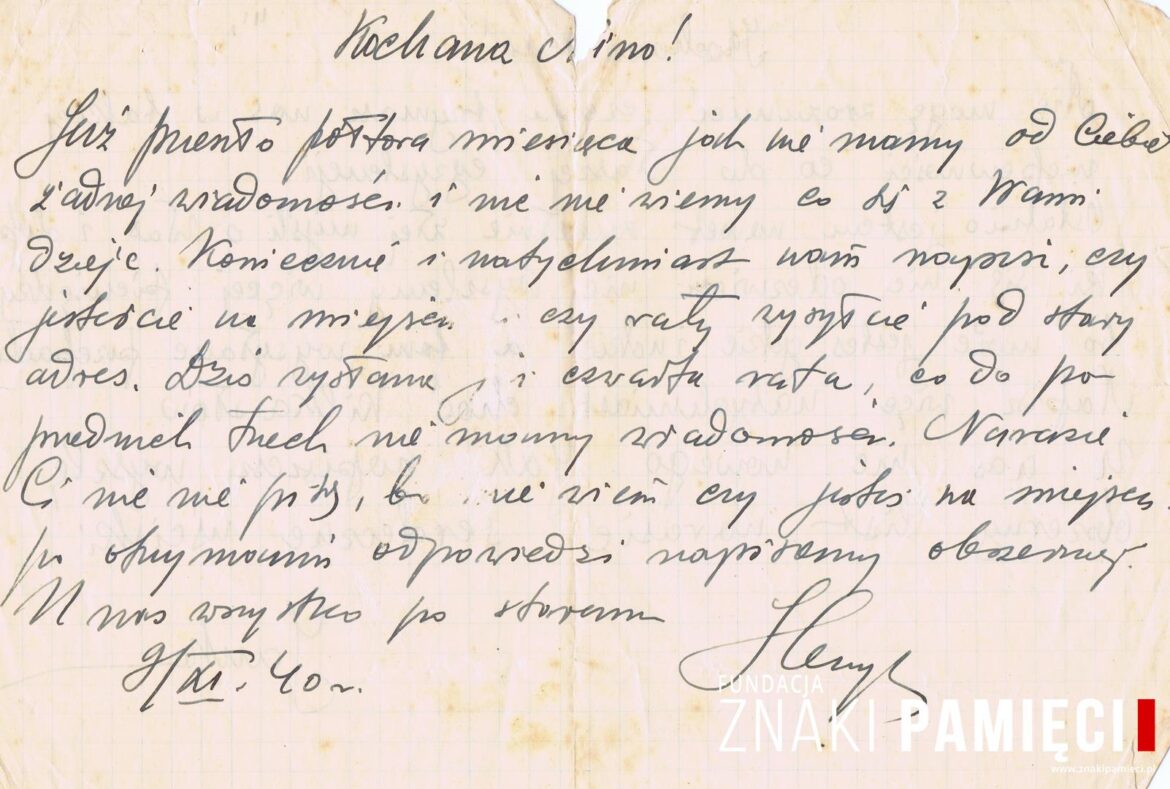 Kochana Nino!
Już przeszło półtora miesiąca jak nie mamy od Ciebie
żadnej wiadomości i nic nie wiemy co się z Wami
dzieje. Koniecznie i natychmiast nam napisz, czy
jesteście na miejscu i czy raty wysyłacie pod stary
adres. Dziś wysłana j i czwarta rata, co do po-
przednich trzech nie mamy wiadomości. Narazie
Ci nic nie piszę, bo nie wiem czy jesteś na miejscu.
po otrzymaniu odpowiedzi napiszemy obszerniej.
U nas wszystko po staremu
9/XI. 40 r.
Henryk
FUNDACJA
ZNAKI PAMIĘCI
www.znakipamieci.pl